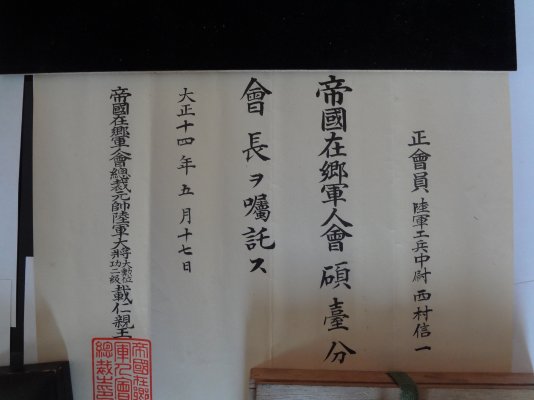 正會員 陸軍工兵中尉 西村信一
帝國在郷軍人會碩臺分
會長ヲ囑託ス
大正十四年五月十七日
帝國在郷軍人會總裁元帥陸軍大將大勲位功二級載仁親王
帝國在郷
軍人會
總裁之印